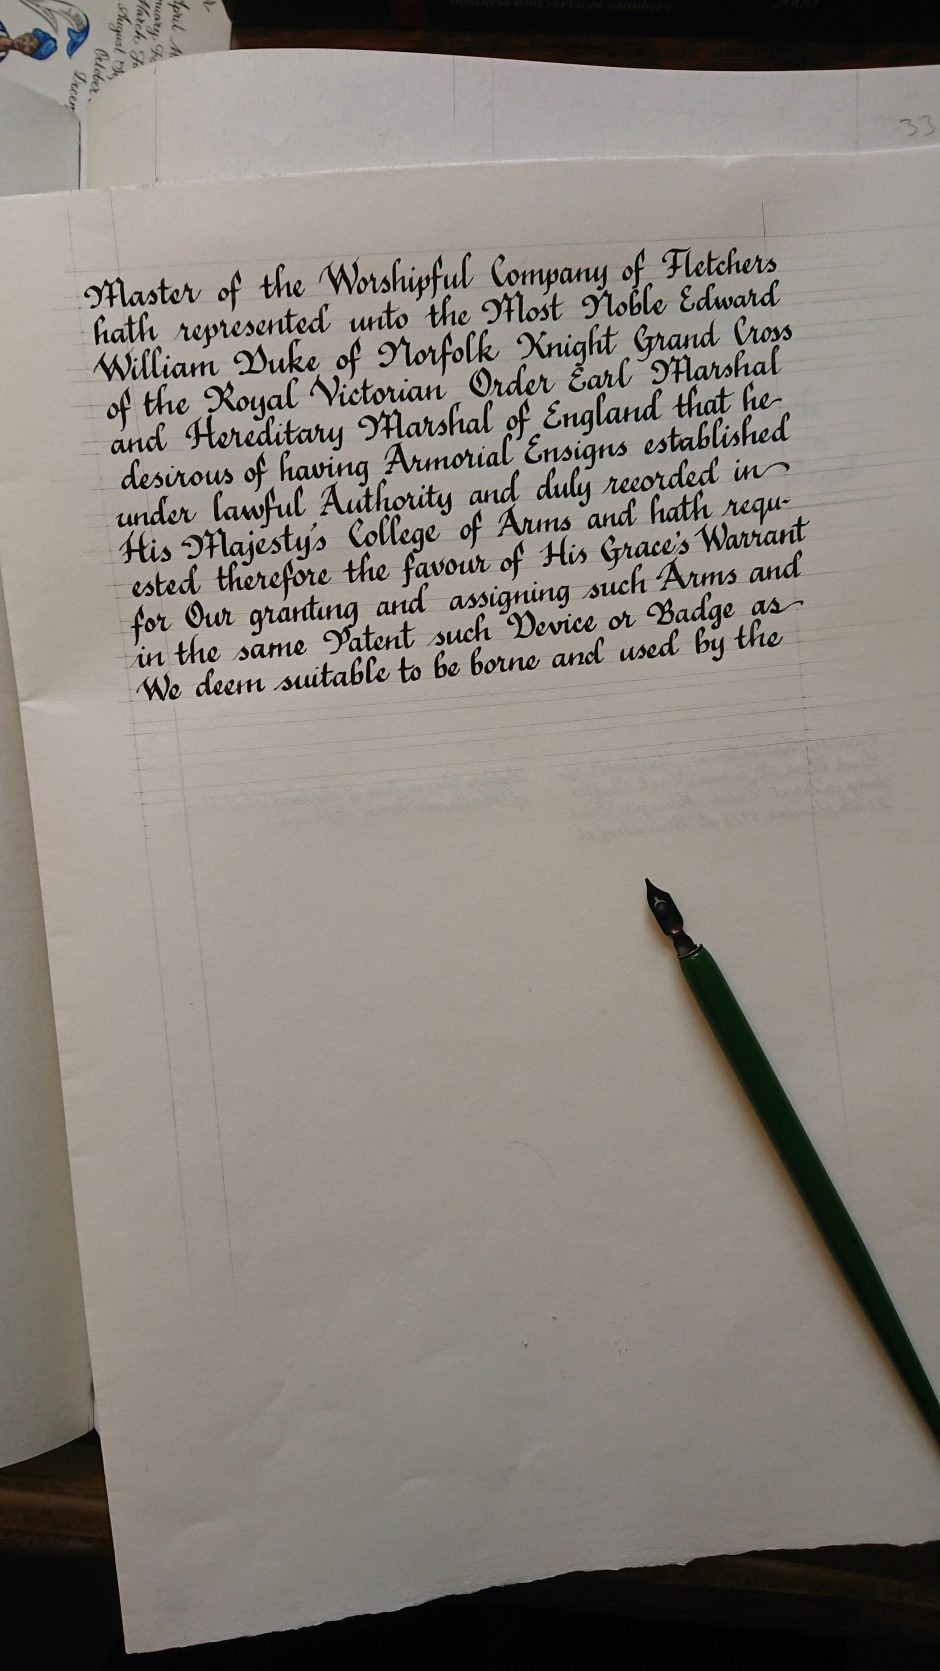 business and services numbers
2000
April
March
August
October
33
Master of the Worshipful Company of Fletchers
hath represented unto the Most Noble Edward
William Duke of Norfolk Knight Grand Cross
of the Royal Victorian Order Earl Marshal
and Hereditary Marshal of England that he
desirous of having Armorial Ensigns established
under lawful Authority and duly recorded in
His Majesty's College of Arms and hath requ-
ested therefore the favour of His Grace's Warrant
for Our granting and assigning such Arms and
in the same Patent such Device or Badge as
We deem suitable to be borne and used by the